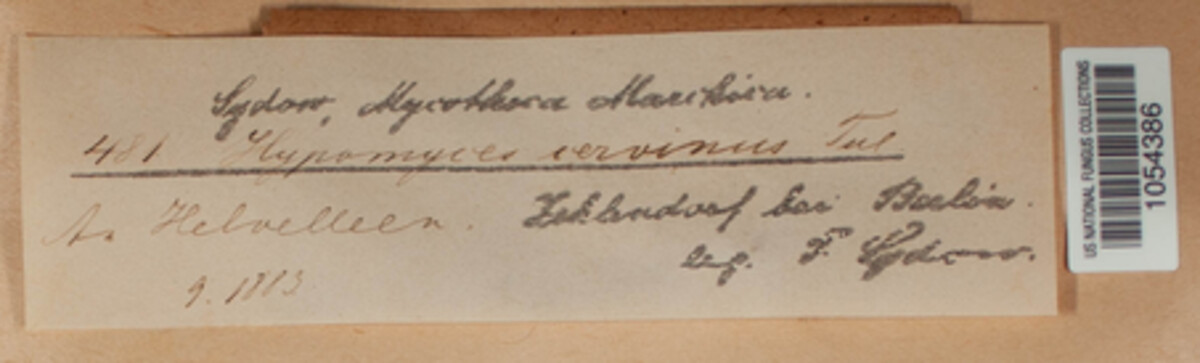 Sydow, Mycotheca Marchica.
481 Hypomyces cervinus Tul
An Helvelleen. Zehlendorf bei Berlin.
leg. P. Sydow.
9. 1883
US NATIONAL FUNGUS COLLECTIONS
1054386